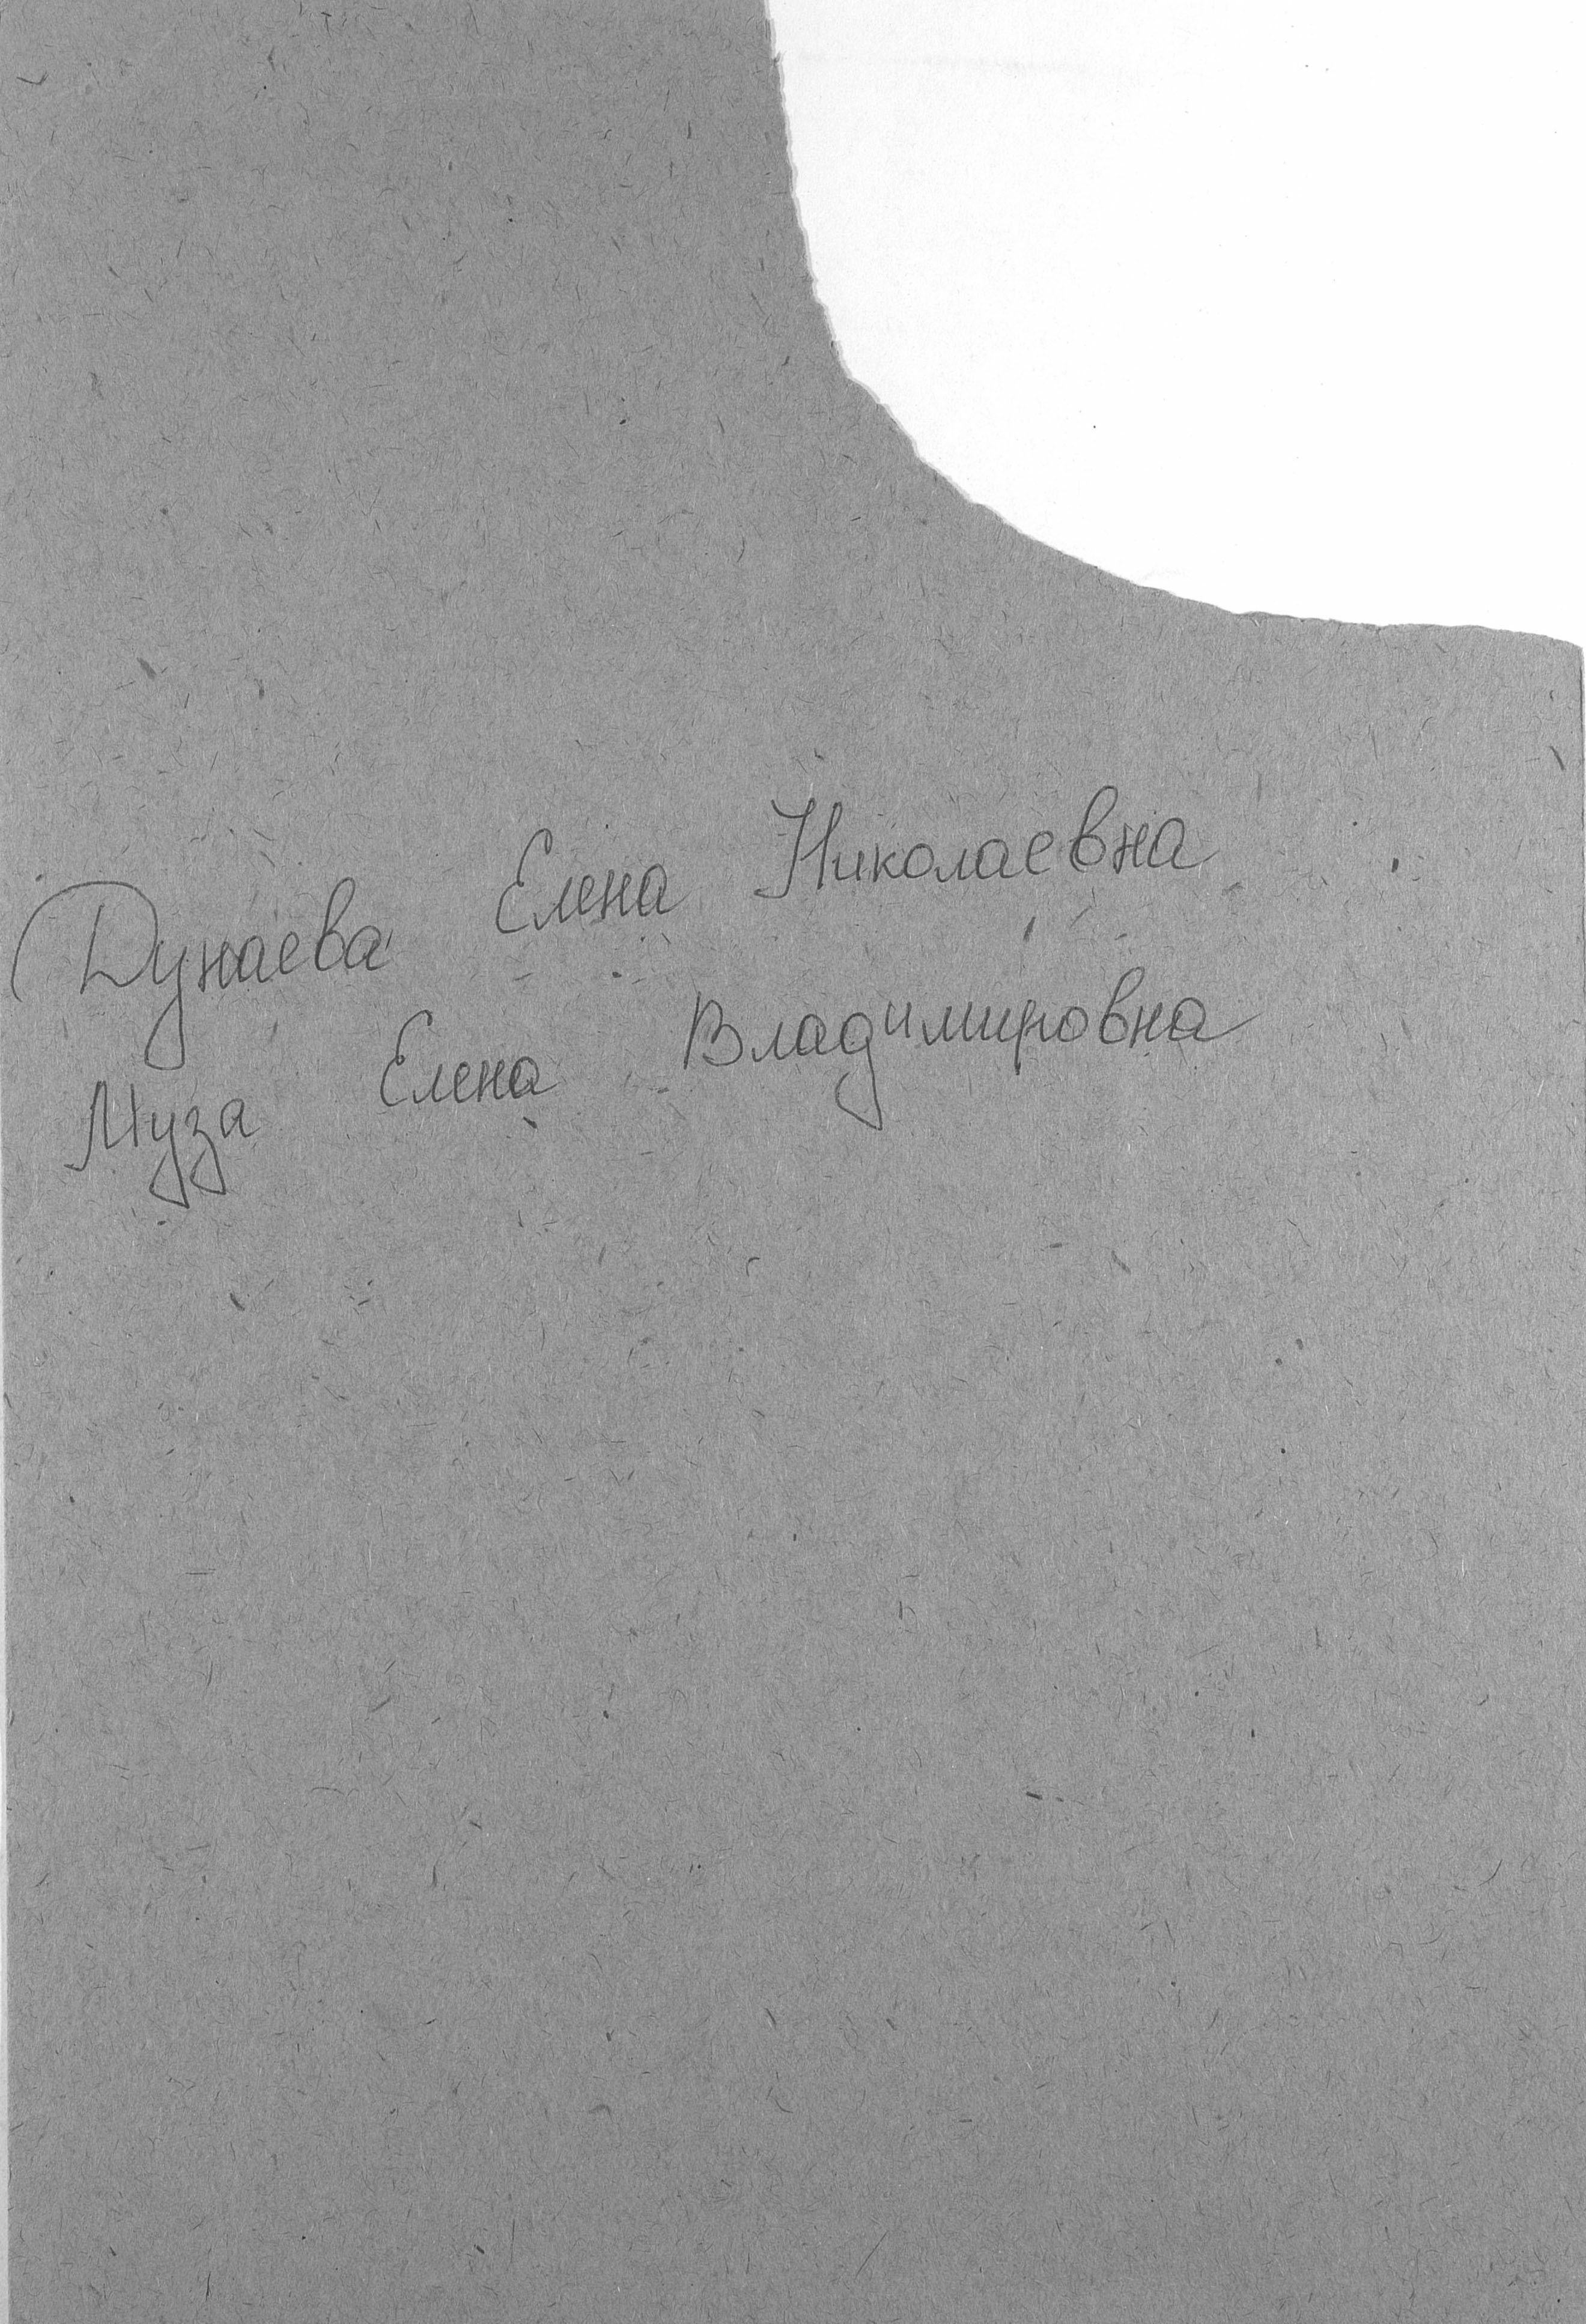 Дунаева Елена Николаевна
Муза Елена Владимировна